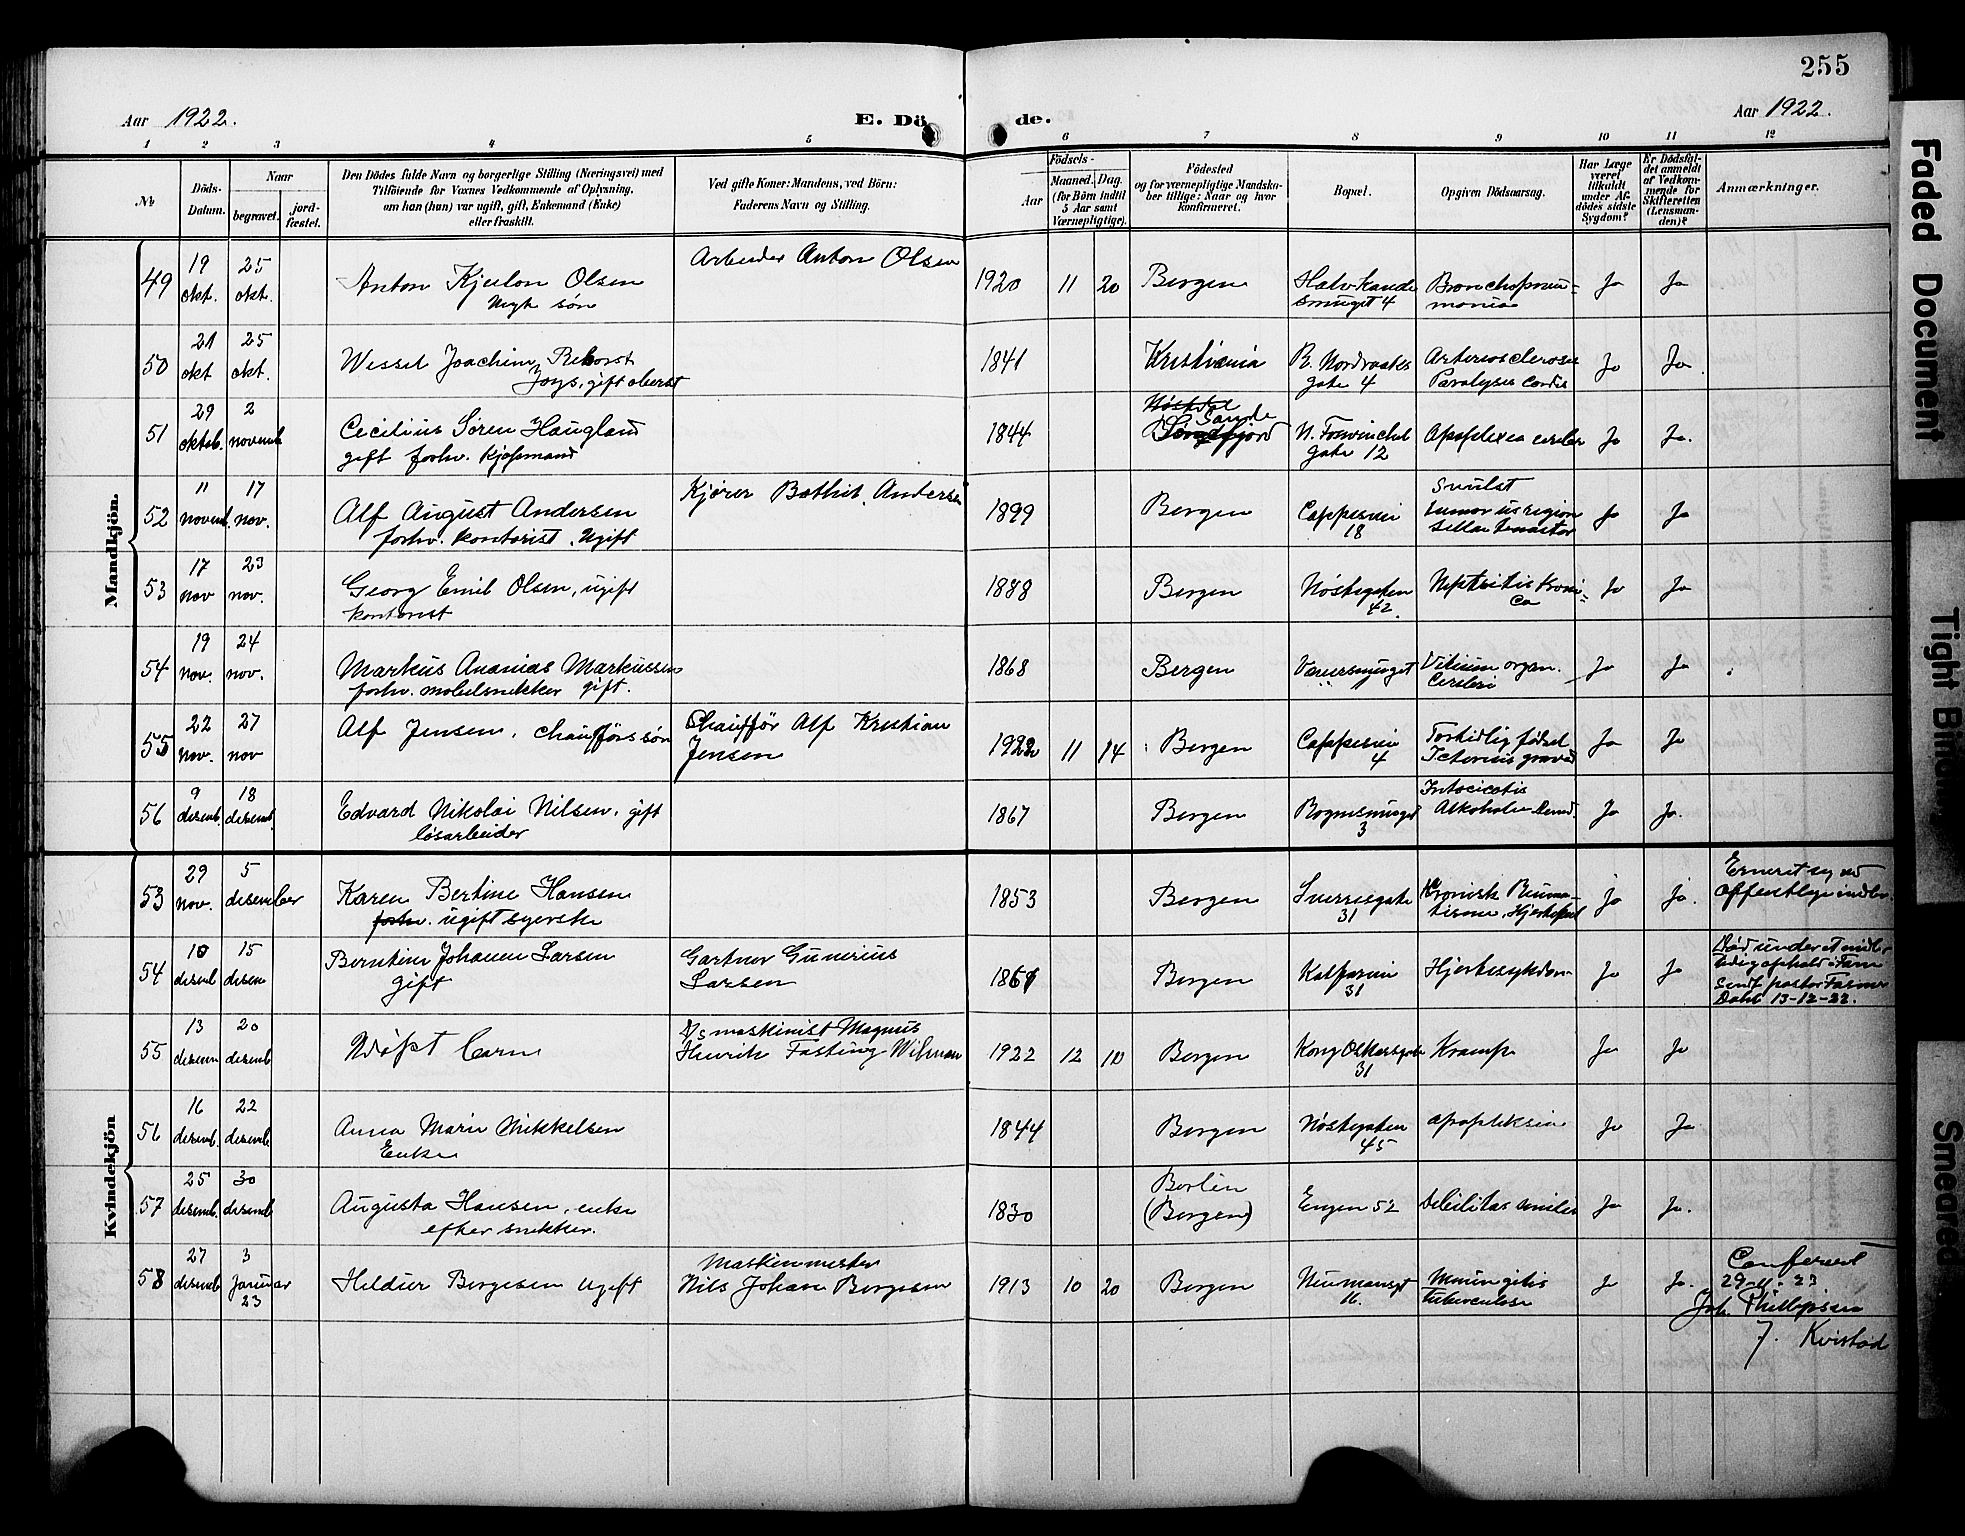 255
Aar 1922. E. Dö de. Aar 1922.
1 2 3 4 5 6 7 8 9 10 11 12
No
Döds-Datum.
Naar
begravet. jord-fæstet.
Den Dödes fulde Navn og borgerlige Stilling (Næringsvei) med
Tilföiende for Voxnes Vedkommende af Oplysning,
om han (hun) var ugift, gift, Enkemand (Enke)
eller fraskilt.
Ved gifte Koner: Mandens, ved Börn:
Faderens Navn og Stilling.
Födsels-
Aar Maaned. Dag.
(for Börn indtil
5 Aar samt
Værnepligtige).
Födested
og for værnepligtige Mandska-
ber tillige: Naar og hvor
konfirmeret.
Bopæl.
Opgiven Dödsaarsag.
Har Læge
været
tilkaldt
under Af-
dödes sidste
Sygdom?
Er Dödsfal-
det anmeldt
af Vedkom-
mende for
Skifteretten
(Lensman-
den)?
Anmærkninger.
Mandkjön.
49 19 okt. 25 okt. Anton Olsen
søn
Arbeider Anton Olsen
1920 11 20 Bergen smuget 4 Bronchopneu=
monia Ja Ja
50 21 okt 25 okt. Wessel Joachim
gift oberst
1841 Kristiania R. Nordraaks
gate 4 Arteriosclerose
Paralysis cordis Ja Ja
51 29 oktob. 2 novemb Cecilius Søren Haugland
gift forhv. kjøpmand
1844 Sande
Søndfjord gate 12 Apoplexia cerebri Ja Ja.
52 11 novemb. 17 nov. Alf August Andersen
forhv. kontorist. Ugift
Kjører Andersen
1899 Bergen 18 Svulst
tumor Ja Ja
53 17 nov 23 nov. Georg Emil Olsen, ugift
kontorist
1888 Bergen Nøstegaten
42. Ja Ja
54 19 nov. 24 nov. Markus Ananias Markussen
forhv. møbelsnekker gift.
1868 Bergen Vitium organ.
Ja Ja
55 22 nov. 27 nov Alf Jensen, chaufførs søn
Chauffør Alf Kristian
Jensen
1922 11 14 Bergen 4 Fortidlig fødsel
Ja Ja
56 9 desemb. 18 desemb. Edvard Nikolai Nilsen, gift
løsarbeider
1867 Bergen 3 Ja Ja.
Kvindekjön
53 29 nov. 5 desember Karen Bertine Hansen
forhv. ugift syerske
1853 Bergen Sverresgate
31 Kronisk Reuma-
tisme, Ja Ja.
54 10 desemb 15 desem Johanne Larsen
gift
Gartner Gunerius
Larsen
Bergen Kalfarvei
31 Hjertesykdom Ja Ja Død under et midler
tidig ophold i Fane
Sendt pastor
Dahl 13-12-22.
55 13 desem 20 desemb Udøpt barn
maskinist Magnus
Henrik Fasting
1922 12 10 Bergen Kong Oskarsgate
31 Krampe Ja Ja
56 16 desemb. 22 desemb Anna Marie Mikkelsen
Enke
1844 Bergen Nøstegaten
45 apopleksia Ja Ja
57 25 desemb. 30 desemb Augusta Hansen, enke
efter snekker.
1830 Berlin
(Bergen) Engen 52 Debilitas senilis Ja Ja.
58 27 desemb 3 Januar
23 Hildur Børgesen ugift
Maskinmester
Nils Johan Børgesen
1913 10 20 Bergen Neumansgt
16. Meningitis
tuberculosa Ja Ja. Conferert
Joh. Phillipsen
J. Kvistad
Faded Document
Tight Binding
Smeared